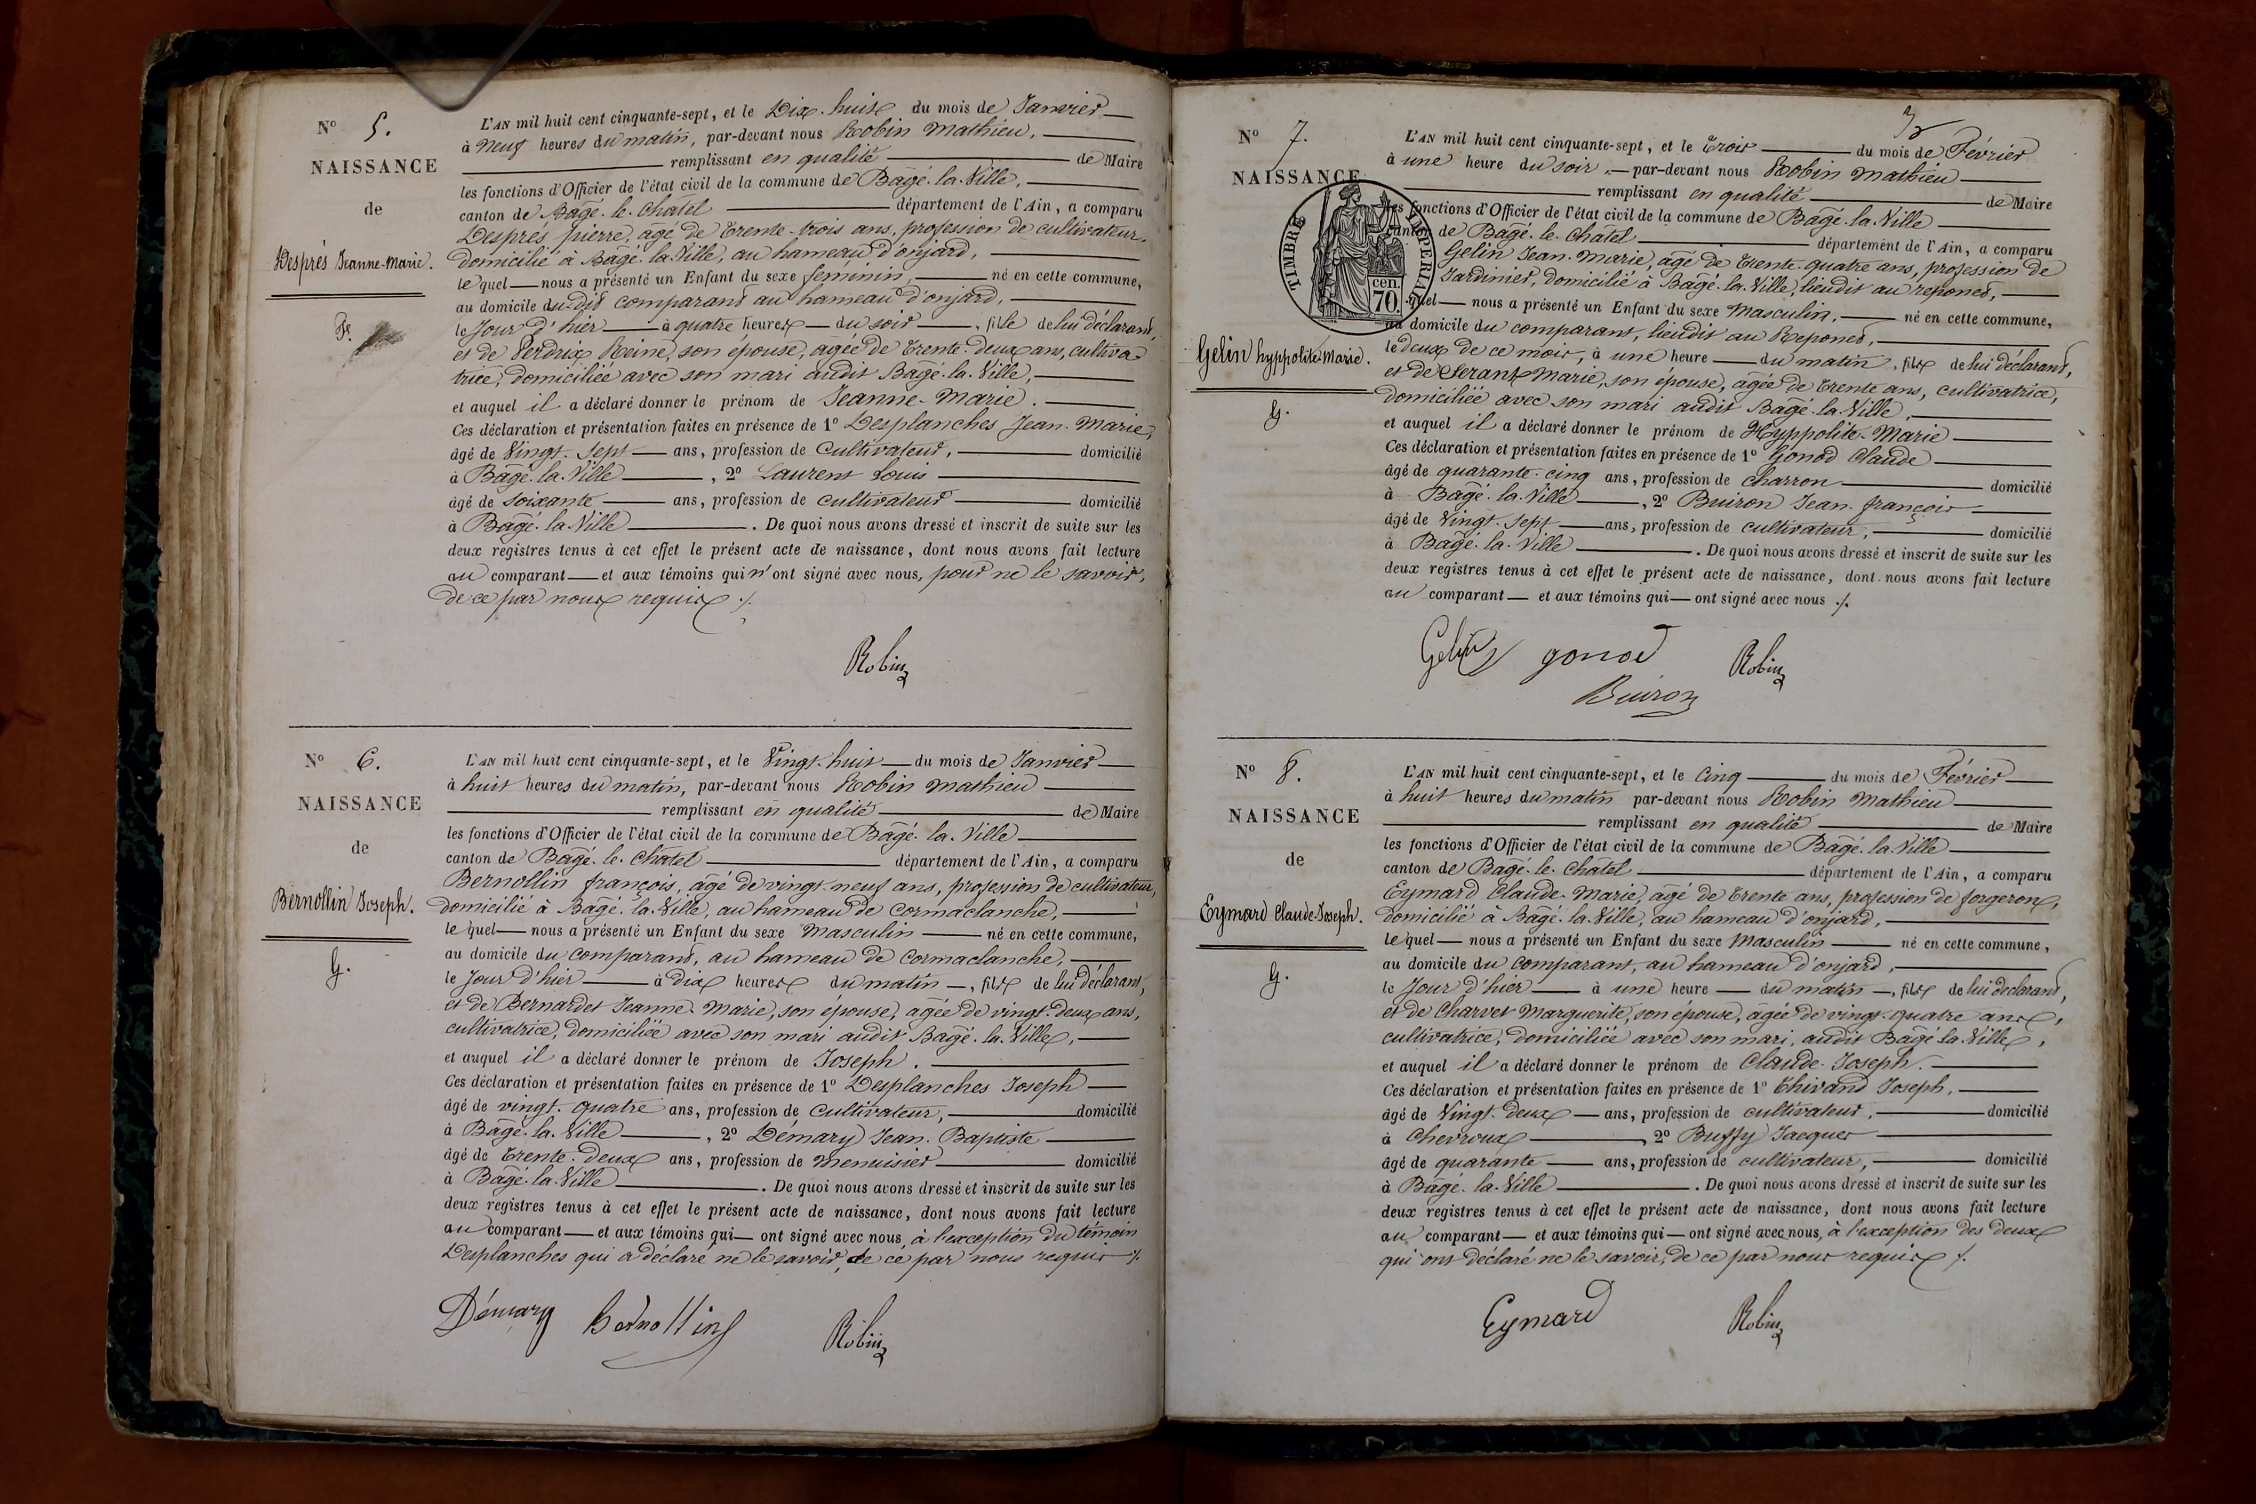 N° 5.
NAISSANCE
de
Després Jeanne-Marie.
F.
L'AN mil huit cent cinquante-sept, et le Dix-huit du mois de Janvier
à neuf heures du matin, par-devant nous Robin Mathieu,
remplissant en qualité de Maire
les fonctions d'Officier de l'état civil de la commune de Bagé-la-Ville,
canton de Bagé-le-Chatel département de l'Ain, a comparu
Després pierre, agé de trente-trois ans, profession de cultivateur,
domicilié à Bagé-la-Ville, au hameau d'onjard,
lequel nous a présenté un Enfant du sexe feminin né en cette commune,
au domicile dudit comparant au hameau d'onjard,
le Jour d'hier à quatre heures du soir, fille de lui déclarant,
et de Perdrix Reine, son épouse, agée de trente-deux ans, cultiva-
trice, domiciliée avec son mari audit Bagé-la-Ville,
et auquel il a déclaré donner le prénom de Jeanne-Marie.
Ces déclaration et présentation faites en présence de 1° Desplanches Jean-Marie,
âgé de Vingt-Sept ans, profession de Cultivateur, domicilié
à Bagé-la-Ville, 2° Laurent Louis
âgé de soixante ans, profession de cultivateur domicilié
à Bagé-la-Ville. De quoi nous avons dressé et inscrit de suite sur les
deux registres tenus à cet effet le présent acte de naissance, dont nous avons fait lecture
au comparant et aux témoins qui n'ont signé avec nous, pour ne le savoir,
de ce par nous requis ./.
Robin
N° 6.
NAISSANCE
de
Bernollin Joseph.
G.
L'AN mil huit cent cinquante-sept, et le Vingt-huit du mois de Janvier
à huit heures du matin, par-devant nous Robin Mathieu
remplissant en qualité de Maire
les fonctions d'Officier de l'état civil de la commune de Bagé-la-Ville
canton de Bagé-le-Châtel département de l'Ain, a comparu
Bernollin françois, âgé de vingt-neuf ans, profession de cultivateur,
domicilié à Bagé-la-Ville, au hameau de Cormaclanche,
lequel nous a présenté un Enfant du sexe Masculin né en cette commune,
au domicile du comparant, au hameau de Cormaclanche,
le Jour d'hier à dix heures du matin, fils de lui déclarant,
et de Bernardet Jeanne-Marie, son épouse, agée de vingt-deux ans,
cultivatrice, domiciliée avec son mari audit Bagé-la-Ville,
et auquel il a déclaré donner le prénom de Joseph.
Ces déclaration et présentation faites en présence de 1° Desplanches Joseph
âgé de vingt-quatre ans, profession de Cultivateur, domicilié
à Bagé-la-Ville, 2° Démary Jean-Baptiste
âgé de trente-deux ans, profession de menuisier domicilié
à Bagé-la-Ville. De quoi nous avons dressé et inscrit de suite sur les
deux registres tenus à cet effet le présent acte de naissance, dont nous avons fait lecture
au comparant et aux témoins qui ont signé avec nous, à l'exception du témoin
Desplanches qui a déclaré ne le savoir, de ce par nous requis ./.
Démary Bernollin Robin
3
N° 7.
NAISSANCE
TIMBRE IMPERIAL
cen. 70.
Gelin hyppolite-Marie.
G.
L'AN mil huit cent cinquante-sept, et le trois du mois de Février
à une heure du soir, par-devant nous Robin Mathieu
remplissant en qualité de Maire
les fonctions d'Officier de l'état civil de la commune de Bagé-la-Ville
canton de Bagé-le-Châtel département de l'Ain, a comparu
Gelin Jean-Marie, âgé de trente-quatre ans, profession de
Jardinier, domicilié à Bagé-la-Ville, lieudit au reponet,
lequel nous a présenté un Enfant du sexe Masculin, né en cette commune,
au domicile du comparant, lieudit au Reponet,
le deux de ce mois, à une heure du matin, fils de lui déclarant,
et de Serant Marie, son épouse, âgée de trente ans, cultivatrice,
domiciliée avec son mari audit Bagé-la-Ville,
et auquel il a déclaré donner le prénom de Hyppolite-Marie
Ces déclaration et présentation faites en présence de 1° Gonod Claude
âgé de quarante-cinq ans, profession de charron domicilié
à Bagé-la-Ville, 2° Buiron Jean-françois
âgé de Vingt-Sept ans, profession de cultivateur, domicilié
à Bagé-la-Ville. De quoi nous avons dressé et inscrit de suite sur les
deux registres tenus à cet effet le présent acte de naissance, dont nous avons fait lecture
au comparant et aux témoins qui ont signé avec nous ./.
Gelin gonod Robin
Buiron
N° 8.
NAISSANCE
de
Eymard Claude-Joseph.
G.
L'AN mil huit cent cinquante-sept, et le Cinq du mois de Février
à huit heures du matin par-devant nous Robin Mathieu
remplissant en qualité de Maire
les fonctions d'Officier de l'état civil de la commune de Bagé-la-Ville
canton de Bagé-le-Châtel département de l'Ain, a comparu
Eymard Claude-Marie, agé de trente ans, profession de forgeron,
domicilié à Bagé-la-Ville, au hameau d'onjard,
lequel nous a présenté un Enfant du sexe Masculin né en cette commune,
au domicile du comparant, au hameau d'onjard,
le Jour d'hier à une heure du matin, fils de lui déclarant,
et de Charvet Marguerite, son épouse, âgée de vingt-quatre ans,
cultivatrice, domiciliée avec son mari, audit Bagé-la-Ville,
et auquel il a déclaré donner le prénom de Claude-Joseph.
Ces déclaration et présentation faites en présence de 1° Thivand Joseph,
âgé de Vingt-deux ans, profession de cultivateur, domicilié
à Chevroux, 2° Buffy Jacques
âgé de quarante ans, profession de cultivateur, domicilié
à Bagé-la-Ville. De quoi nous avons dressé et inscrit de suite sur les
deux registres tenus à cet effet le présent acte de naissance, dont nous avons fait lecture
au comparant et aux témoins qui ont signé avec nous, à l'exception des deux
qui ont déclaré ne le savoir, de ce par nous requis ./.
Eymard Robin